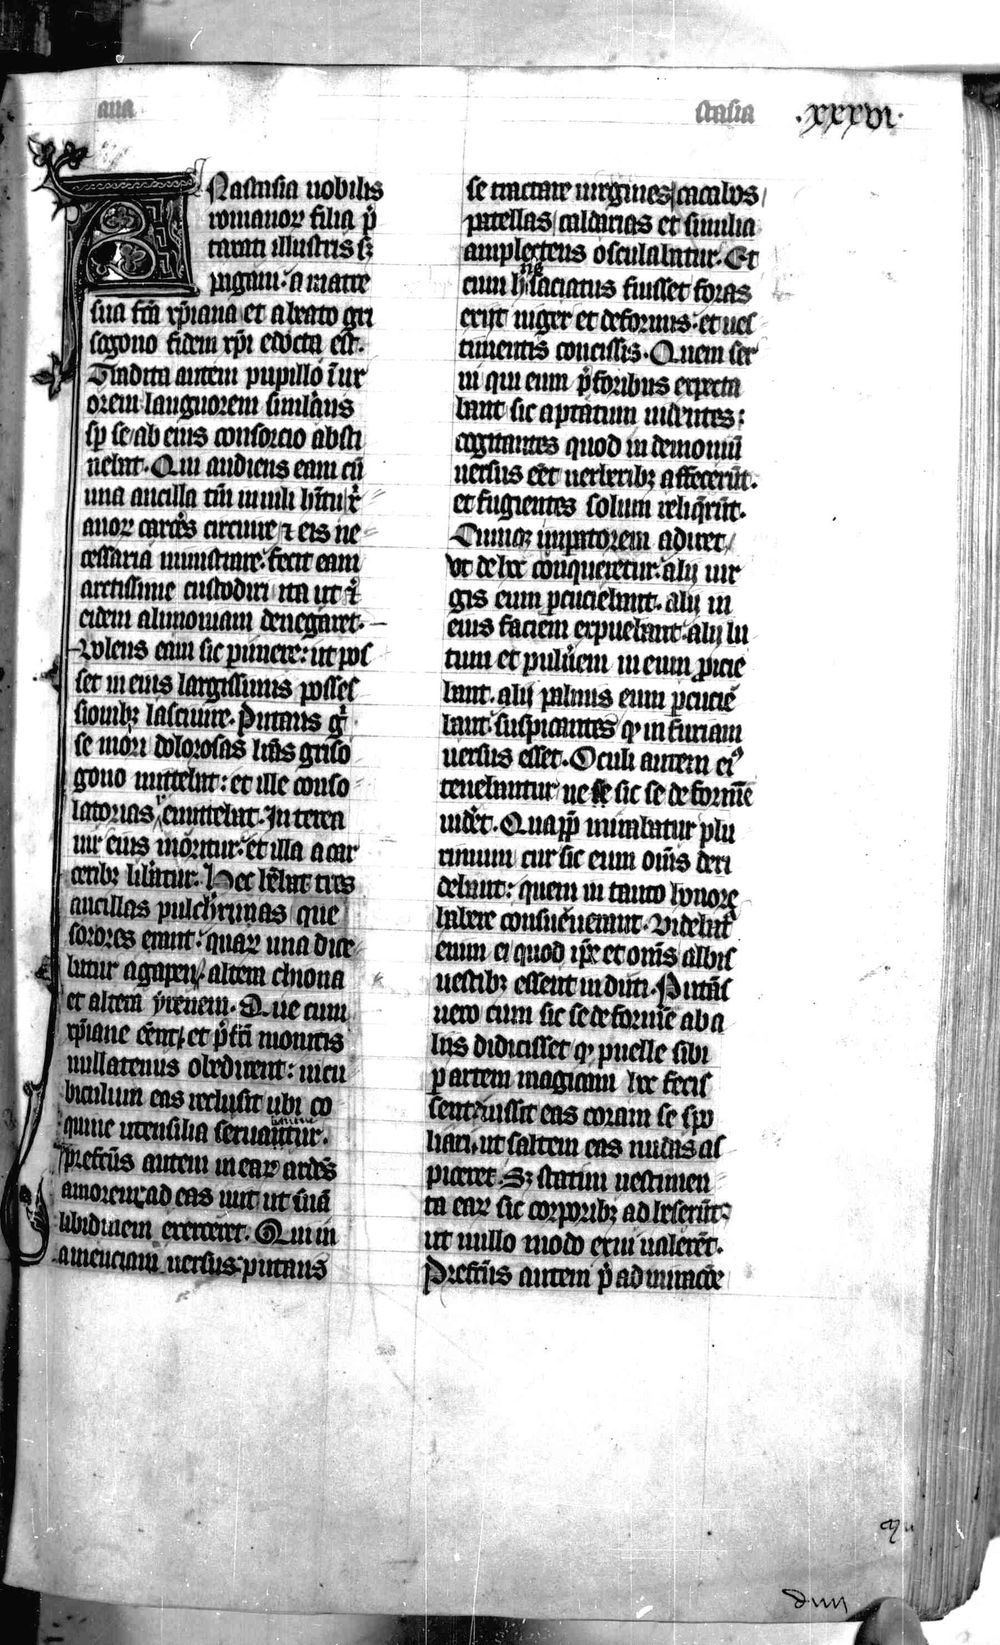 ana
stasia .xxxvi.
ANastasia nobilis
romanoꝝ filia p̄
tarati illustris sꝫ
pagani: a matre
sua fc̄a xp̄iana et a beato gri
sogono fidem xp̄i edocta est.
Tradita autem pupillo ī ux
orem languorem simulans
sp̄ se ab eius consorcio absti
nebat. Qui audiens eam cū
una ancilla tm̄ in uili hītu xͥ
anoꝝ carc̄es circuire ⁊ eis ne
cessaria ministrare: fecit eam
artissime custodiri ita ut ⁊
eidem alimoniam denegaret.
Volens eam sic ꝑimere: ut pos
set in eius largissimis posses
sionibꝫ lasciuire. Putans gͥ
se mori dolorosas lr̄as griso
gono mittebat: et ille conso
latorias ei mittebat. Interea
uir eius moritur: et illa a car
ceribꝫ lib̄atur. Hec hēbat tres
ancillas pulch̄rimas que
sorores erant: quaꝝ una dice
batur agapen. altera chiona
et altera yrenem. Que cum
xp̄iane eēnt et p̄fc̄i monitis
nullatenus obedirent: in cu
biculum eas reclusit ubi co
quine utensilia seruabantur.
Prefc̄us autem in eaꝝ ardēs
amorem ad eas iuit ut suā
libidinem exerceret. Qui in
amenciam uersus: putans
se tractare uirgines cacabos
patellas caldarias et similia
amplectens osculabatur. Et
cum hiis saciatus fuisset foras
exijt niger et deformis: et ues
timentis concissis. Quem ser
ui qui eum p̄ foribus expecta
bant sic aptatum uidentes:
cogitantes quod in demoniū
uersus eēt uerberibꝫ affecerūt.
et fugientes solum reliq̄rūt.
Cumqꝫ imꝑatorem adiret
ut de hoc conqueretur: alij uir
gis eum ꝑcuciebant. alij in
eius faciem expuebant. alij lu
tum et puluerem in eum ꝓicie
bant. alij palmis eum ꝑcucie
bant: suspicantes ꝙ in furiam
uersus esset. Oculi autem eiꝰ
tenebantur ne se sic se deformē
uidēt. Quapp̄ mirabatur plu
rimum cur sic eum om̄s deri
debant: quem in tanto honore
habere consueuerant. Videbatͬ
enim ei quod ip̄e et om̄s albis
uestibꝫ essent induti. Putās
uero cum sic se deformē ab a
liis didicisset ꝙ puelle sibi
ꝑ artem magicam hoc fecis
sent: iussit eas coram se spo
liari. ut saltem eas nudas as
piceret. Sꝫ statim uestimen
ta eaꝝ sic corporibꝫ adheserūt:
ut nullo modo exui ualerēt.
Prefc̄us autem p̄ admiracōe